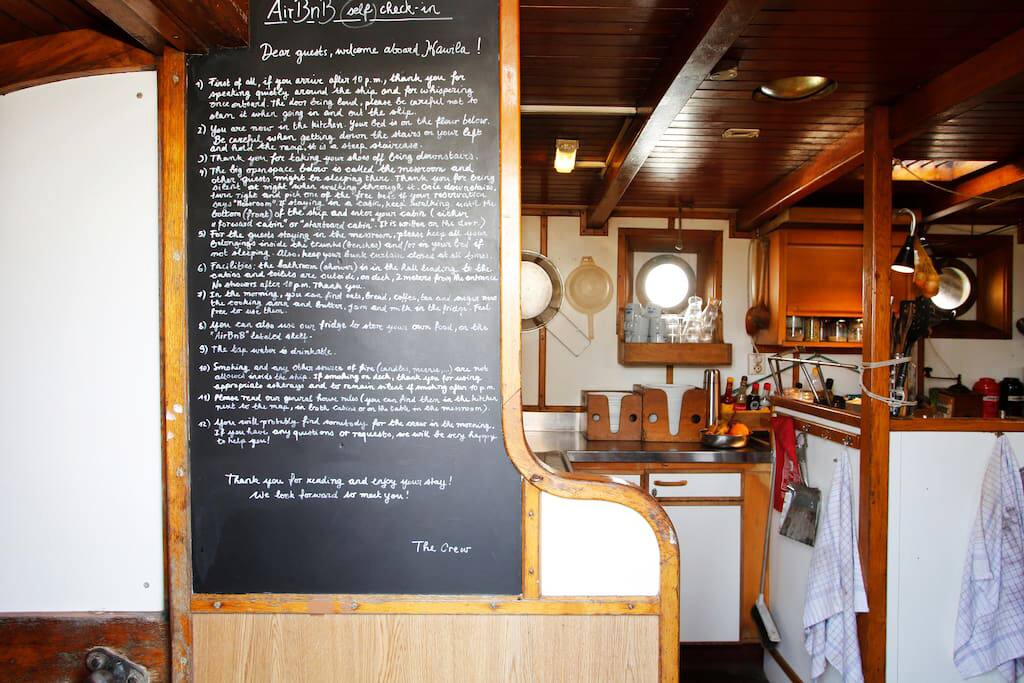 AirBnB self check-in
Dear guests, welcome aboard Kawila !
1) First of all, if you arrive after 10 p.m., thank you for
speaking quietly around the ship and for whispering
once onboard. The door being loud, please be careful not to
slam it when going in and out the ship.
2) You are now in the kitchen. Your bed is on the floor below.
Be careful when getting down the stairs on your left
and hold the ramp, it is a steep staircase.
3) Thank you for taking your shoes off being downstairs.
4) The big open space below is called the messroom and
other guests might be sleeping there. Thank you for being
silent at night when walking through it. Once downstairs,
turn right and pick one of the free beds if your reservation
says "Messroom". If staying in a cabin, keep walking until the
bottom (front) of the ship and enter your cabin (either
"forward cabin" or "starboard cabin". It is written on the door.)
5) For the guests staying in the messroom, please keep all your
belongings inside the trunks (benches) and/or in your bed if
not sleeping. Also, keep your bunk curtain closed at all times.
6) Facilities: the bathroom (shower) is in the hall leading to the
cabins and toilets are outside, on deck, 2 meters from the entrance.
No showers after 10 p.m. Thank you.
7) In the morning, you can find oats, bread, coffee, tea and sugar near
the cooking area and butter, jam and milk in the fridge. Feel
free to use them.
8) You can also use our fridge to store your own food, on the
"AirBnB" labeled shelf.
9) The tap water is drinkable.
10) Smoking and any other source of fire (candles, ...) are not
allowed inside the ship. If smoking on deck, thank you for using
appropriate ashtrays and to remain silent if smoking after 10 p.m.
11) Please read our general house rules (you can find them in the kitchen
next to the map, in both cabins or on the table in the messroom).
12) You will probably find somebody for the crew in the morning.
If you have any questions or requests, we will be very happy
to help you!
Thank you for reading and enjoy your stay!
We look forward to meet you!
The Crew